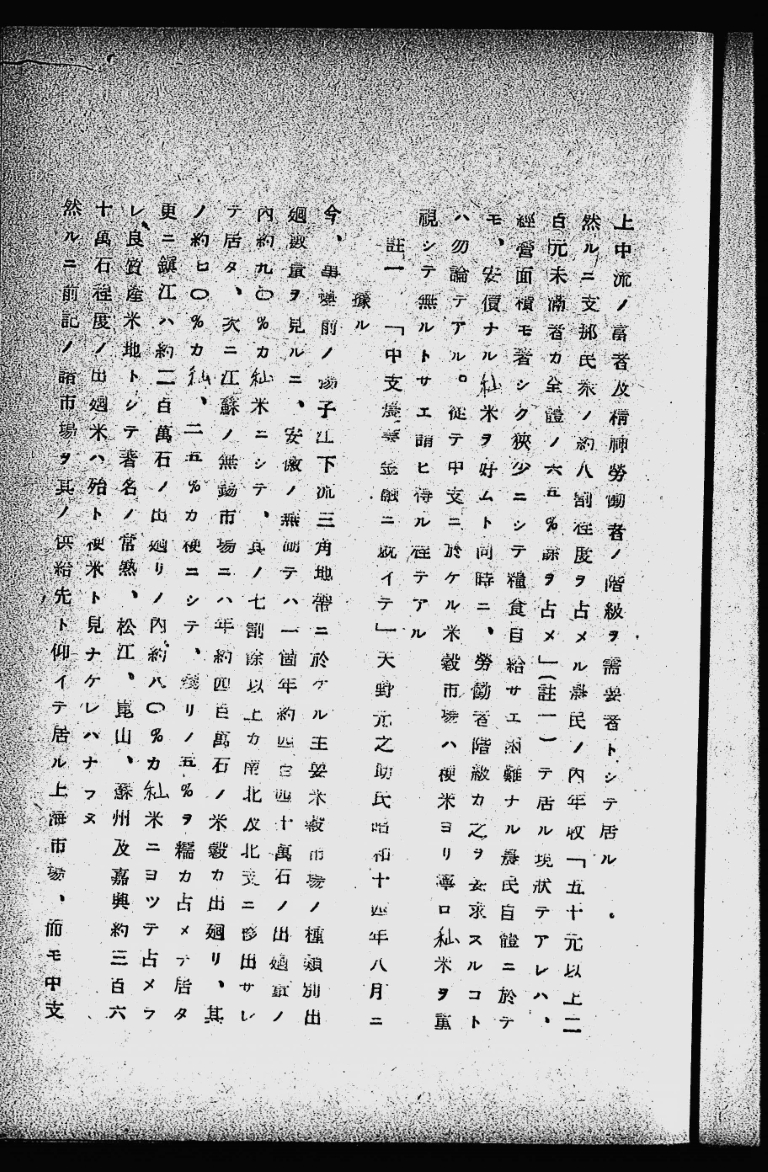 上中流ノ富者及精神勞働者ノ階級ヲ需要者トシテ居ル。
然ルニ支那民衆ノ約八割程度ヲ占メル農民ノ內年收「五十元以上二
百元未滿者カ全體ノ六五％餘ヲ占メ」（註一）テ居ル現狀テアレハ、
經營面積モ著シク狹少ニシテ糧食自給サエ困難ナル農民自體ニ於テ
モ、安價ナル秈米ヲ好ムト同時ニ、勞働者階級カ之ヲ要求スルコト
ハ勿論テアル。從テ中支ニ於ケル米穀市場ハ粳米ヨリ寧ロ秈米ヲ重
視シテ無ルトサエ謂ヒ得ル程テアル
註一　「中支農業金融ニ就イテ」天野元之助氏昭和十四年八月ニ
據ル
今、事變前ノ揚子江下流三角地帶ニ於ケル主要米穀市場ノ種類別出
廻數量ヲ見ルニ、安徽ノ無湖テハ一箇年約四百四十萬石ノ出廻量ノ
內約九〇％カ秈米ニシテ、其ノ七割餘以上カ南北及北支ニ移出サレ
テ居タ、次ニ江蘇ノ無錫市場ニハ年約四百萬石ノ米穀カ出廻リ、其
ノ約七〇％カ秈、二五％カ粳ニシテ、殘リノ五％ヲ糯カ占メテ居タ
更ニ鎭江ハ約二百萬石ノ出廻リノ內約八〇％カ秈米ニヨツテ占メラ
レ良質産米地トシテ著名ノ常熟、松江、崑山、蘇州及嘉興約三百六
十萬石程度ノ出廻米ハ殆ト粳米ト見ナケレハナラヌ
然ルニ前記ノ諸市場ヲ其ノ供給先ト仰イテ居ル上海市場、而モ中支